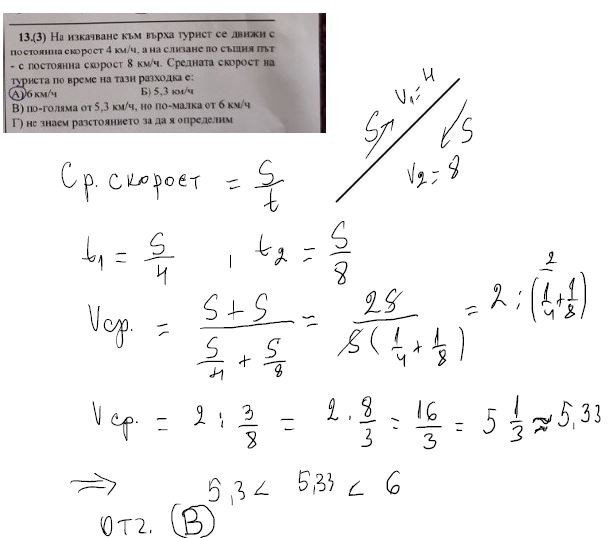 13.(3) На изкачване към върха турист се движи с
постоянна скорост 4 км/ч, а на слизане по същия път
- с постоянна скорост 8 км/ч. Средната скорост на
туриста по време на тази разходка е:
А) 6 км/ч Б) 5,3 км/ч
В) по-голяма от 5,3 км/ч, но по-малка от 6 км/ч
Г) не знаем разстоянието за да я определим
V₁=4
S S
V₂=8
Ср. скорост = S/t
t₁ = S/4 , t₂ = S/8
Vср. = (S+S)/(S/4 + S/8) = 2S/(S(1/4 + 1/8)) = 2 : (2/4 + 1/8)
Vср. = 2 : 3/8 = 2 . 8/3 = 16/3 = 5 1/3 ≈ 5,33
⇒ 5,3 < 5,33 < 6
отг. В